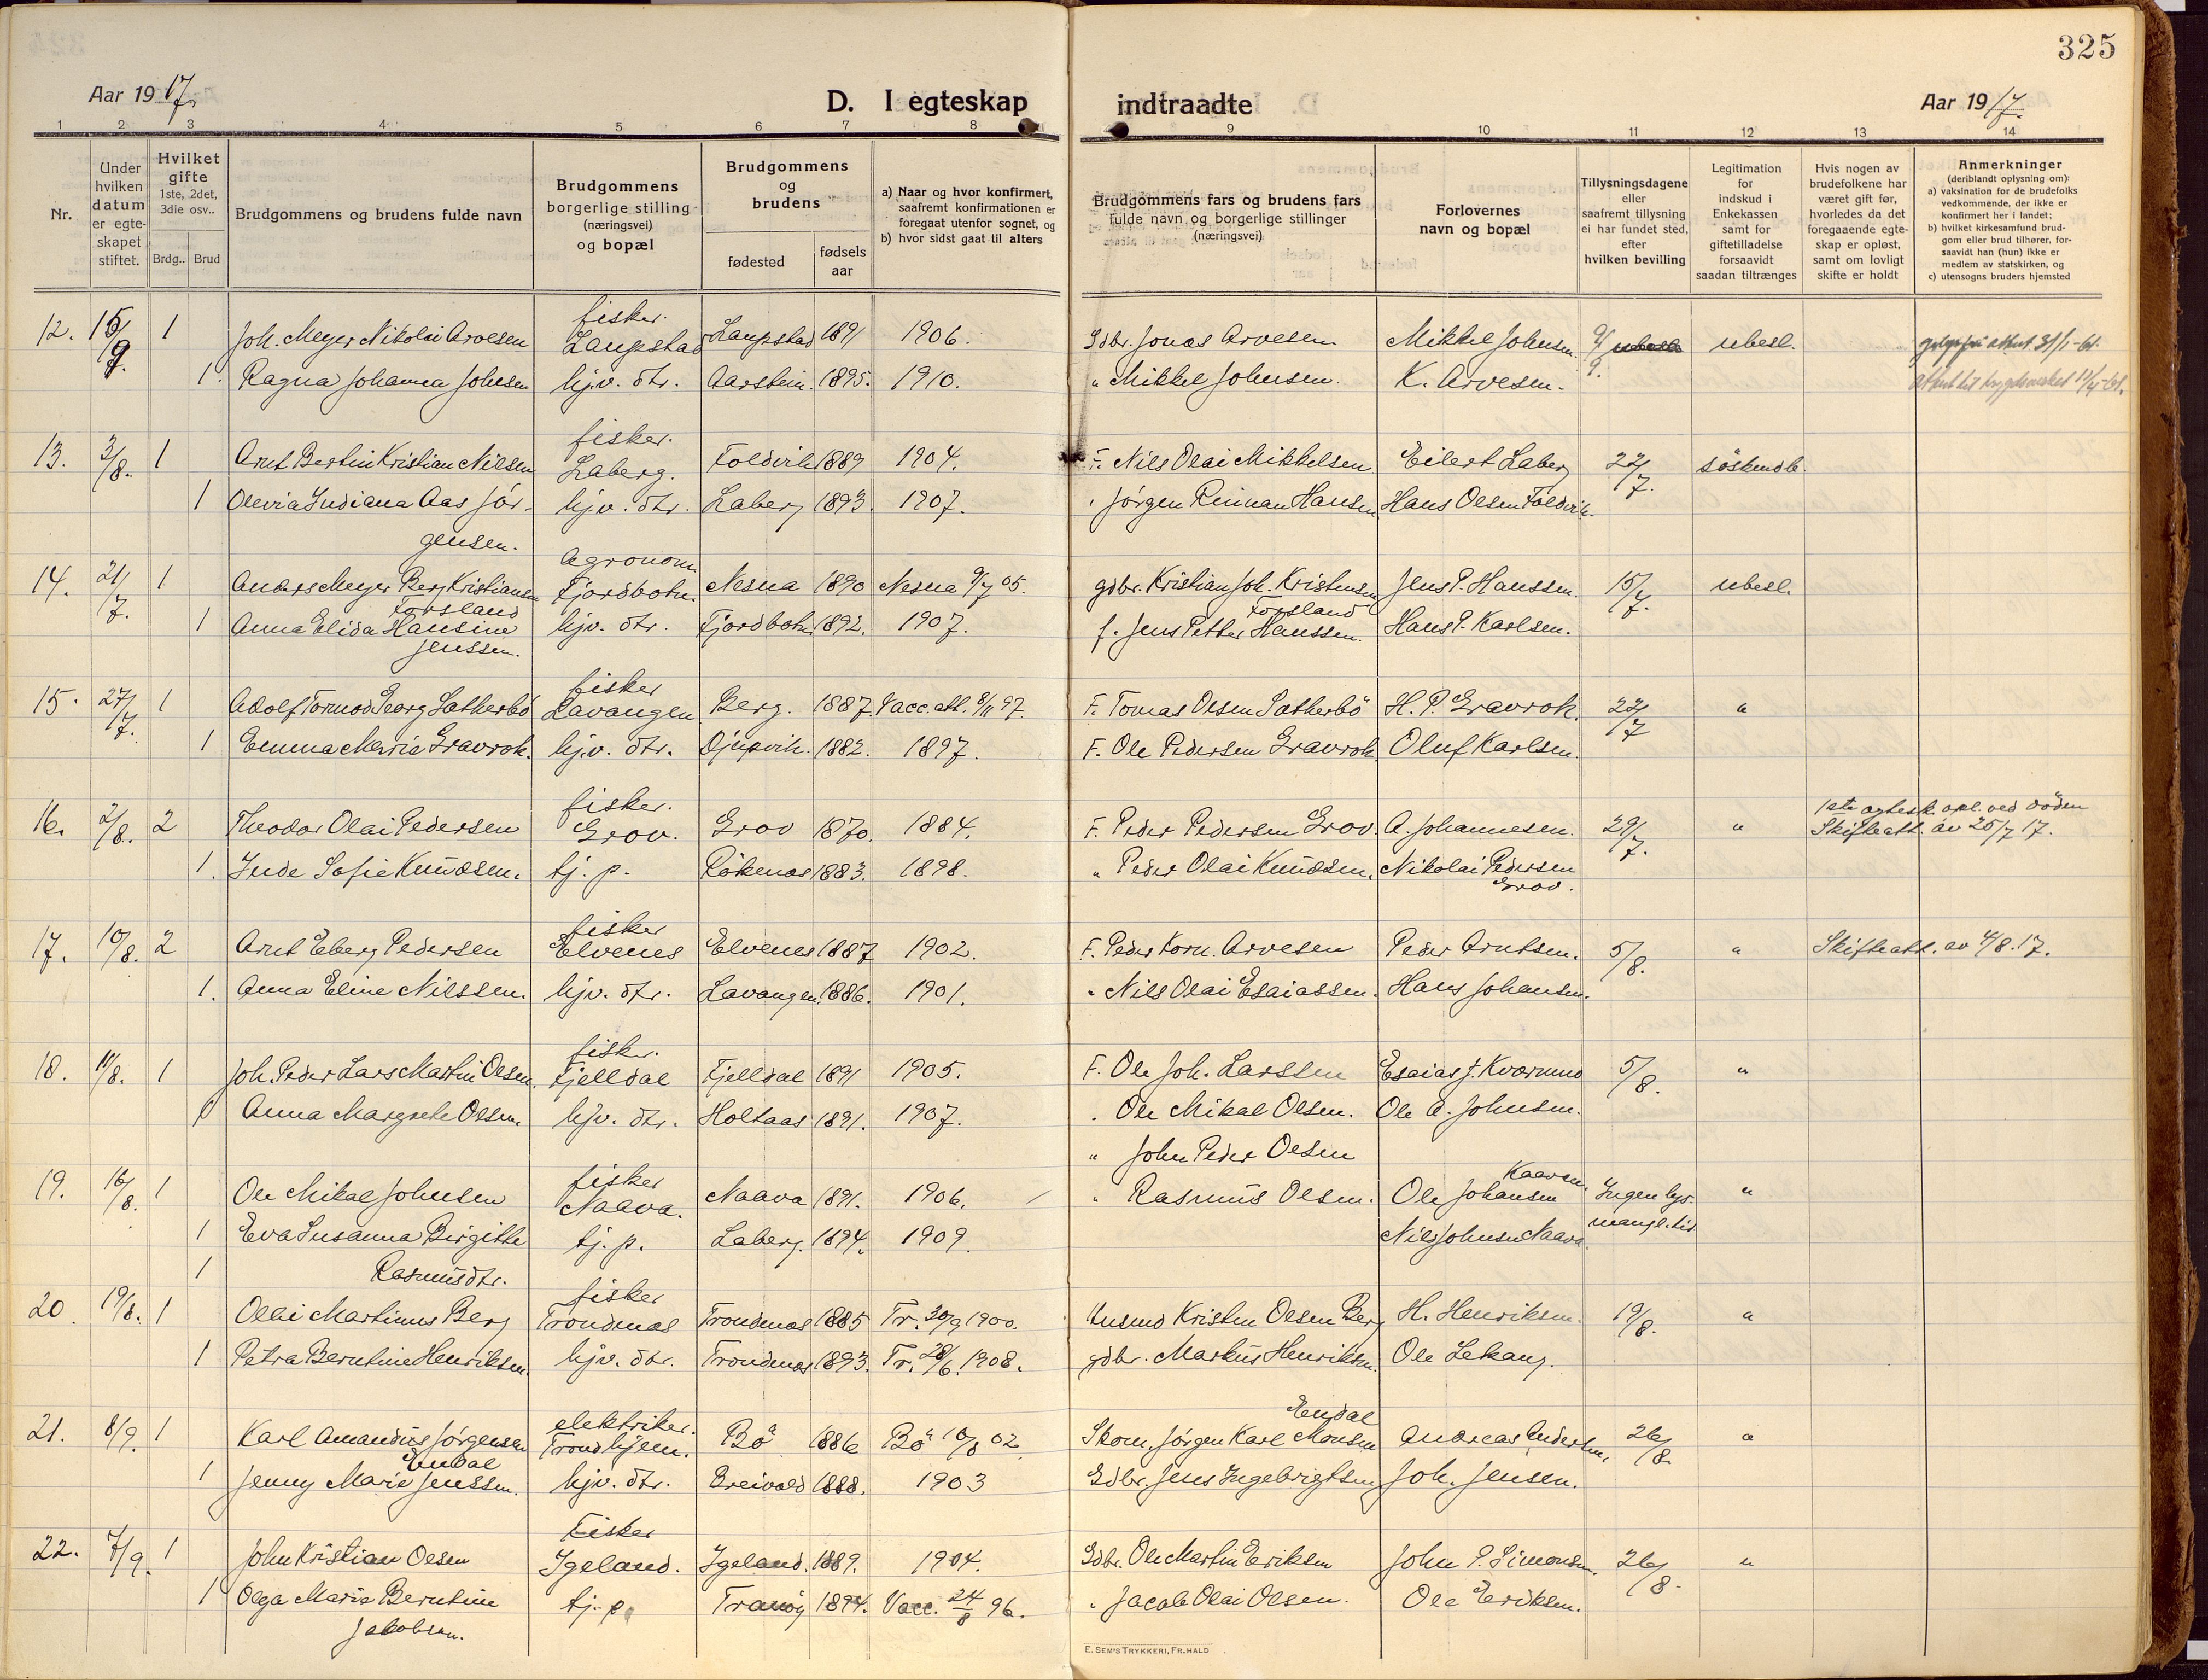 325
Aar 1917.
D. I egteskap
indtraadte
Aar 1917.
1 2 3 4 5 6 7 8 9 10 11 12 13 14
Nr.
Under hvilken datum er egteskapet stiftet.
Hvilket gifte 1ste, 2det, 3die osv..
Brdg.. Brud
Brudgommens og brudens fulde navn
Brudgommens borgerlige stilling (næringsvei) og bopæl
Brudgommens og brudens
fødested
fødsels aar
a) Naar og hvor konfirmert, saafremt konfirmationen er foregaat utenfor sognet, og
b) hvor sidst gaat til alters
Brudgommens fars og brudens fars fulde navn og borgerlige stillinger (næringsvei)
Forlovernes navn og bopæl
Tillysningsdagene eller saafremt tillysning ei har fundet sted, efter hvilken bevilling
Legitimation for indskud i Enkekassen samt for giftetilladelse forsaavidt saadan tiltrænges
Hvis nogen av brudefolkene har været gift før, hvorledes da det foregaaende egteskap er opløst, samt om lovligt skifte er holdt
Anmerkninger
(deriblandt oplysning om):
a) vaksination for de brudefolks vedkommende, der ikke er konfirmert her i landet;
b) hvilket kirkesamfund brudgom eller brud tilhører, forsaavidt han (hun) ikke er medlem av statskirken, og
c) utensogns bruders hjemsted
fisker.
12. 15/9. 1 Joh. Meyer Nikolai Arvesen Laupstad Laupstad 1891 1906. Gdbr. Jonas Arvesen Mikkel Johnsen. 9/9. ubesl.
1. Ragna Johanna Johnsen hjv. dtr. Aarstein. 1895. 1910. " Mikkel Johnsen. K. Arvesen.
fisker.
13. 3/8. 1 Arnt Bertin Kristian Nilsen Laberg. Foldvik 1889 1904. F. Nils Olai Mikkelsen. Eilert Laberg 22/7. søskendb.
1 Olevia Indiana Aas Jør- hjv. dtr. Laberg 1893. 1907. " Jørgen Reinan Hansen Hans Olsen Foldvik.
gensen.
Agronom.
14. 21/7. 1 Anders Meyer Berg Kristiansen Fjordbotn. Nesna 1890 Nesna 9/7 05. gdbr. Kristian Joh. Kristensen Jens P. Hanssen. 15/7. ubesl.
Forsland Forsland
1 Anna Elida Hansine hjv. dtr. Fjordbotn. 1892. 1907. f. Jens Petter Hanssen. Hans P. Karlsen.
Jenssen.
fisker
15. 27/7. 1 Adolf Tormod Georg Sætherbø Lavangen Berg. 1887. Vacc. att. 8/11 97. F. Tomas Olsen Sætherbø H. P. Gravrok. 22/7 "
1 Emma Marie Gravrok. hjv. dtr. Djupvik. 1882. 1897. F. Ole Pedersen Gravrok Oluf Karlsen.
fisker. 1ste egtesk. opl. ved døden
16. 2/8. 2 Theodor Olai Pedersen Grov. Grov 1870. 1884. F. Peder Pedersen Grov. A. Johannesen. 29/7. " Skifteatt. av 25/7 17.
1. Inde Sofie Knudsen. tj. p. Røkenæs 1883. 1898. " Peder Olai Knudsen. Nikolai Pedersen
Grov.
fisker
17. 10/8. 2 Arnt Eberg Pedersen Elvenes Elvenes 1887 1902. F. Peder Korn. Arvesen Peder Arntsen. 5/8. " Skifteatt. av 4/8. 17.
1. Anna Eline Nilssen. hjv. dtr. Lavangen. 1886. 1901. " Nils Olai Esaiassen. Hans Johansen.
fisker.
18. 11/8. 1 Joh. Peder Lars Martin Olsen. Fjelldal Fjelldal 1891 1905. F. Ole Joh. Larssen Esaias J. Kvernmo 5/8. "
1 Anna Margrete Olsen. hjv. dtr. Holtaas 1891. 1907. " Ole Mikal Olsen. Ole A. Johnsen.
" John Peder Olsen
fisker Kaaven.
19. 16/8. 1 Ole Mikal Johnsen Naava. Naava 1891. 1906. " Rasmus Olsen. Ole Johansen Ingen lys. "
1 Eva Susanna Birgitte tj. p. Laberg. 1894. 1909 Nils Johnsen Naava. mangl. tid
1 Rasmusdtr.
fisker
20. 19/8. 1 Olai Martinus Berg Trondenæs Trondenæs 1885 Tr. 30/9 1900. Husmd Kristen Olsen Berg H. Henriksen. 19/8. "
1 Petra Berntine Henriksen. hjv. dtr. Trondenæs 1893. Tr. 28/6. 1908. gdbr. Markus Henriksen. Ole Lekang.
elektriker. Endal
21. 8/9. 1 Karl Amandus Jørgensen Trondhjem. Bø 1886 Bø 10/8 02 Skom. Jørgen Karl Monsen Andreas Andersen. 26/8. "
Endal
1 Jenny Marie Jenssen. hjv. dtr. Breivold 1888. 1903 Gdbr. Jens Ingebrigtsen Joh. Jensen.
Fisker
22. 7/9. 1 John Kristian Olsen Igeland. Igeland. 1889. 1904. Gdbr. Ole Martin Eriksen John P. Simonsen. 26/8. "
1 Olga Marie Berntine tj. p. Tranøy 1894. Vacc. 24/8 96. " Jacob Olai Olsen. Ole Eriksen.
Jakobsen.
E. SEM'S TRYKKERI, FR.HALD